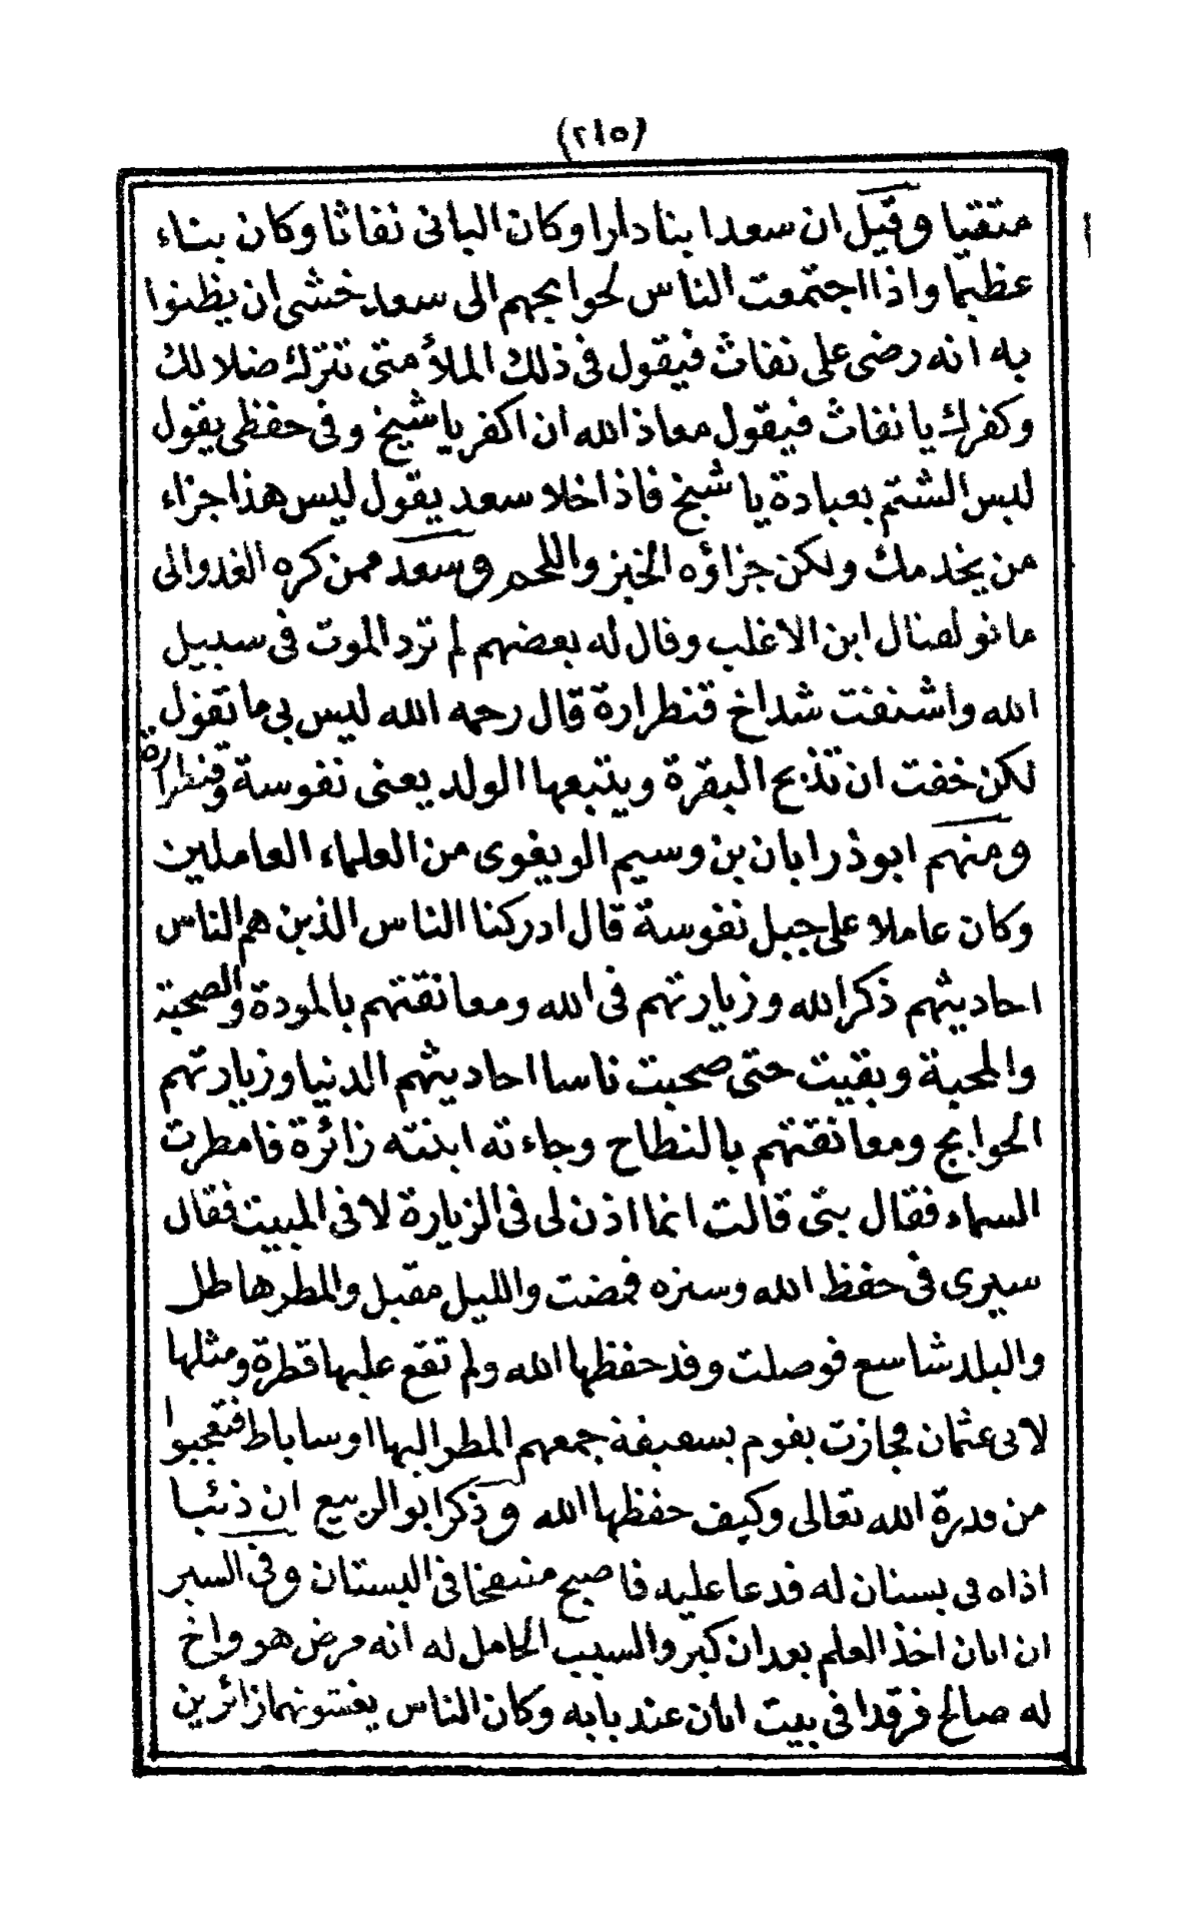 (٢١٥)
متقيا وقيل ان سعدا بنا دارا وكان البانى نفاثا وكان بناء
عظيما واذا اجتمعت الناس لحوايجهم الى سعد خشى ان يظنوا
به انه رضى على نفاث فيقول فى ذلك الملأ متى تترك ضلالك
وكفرك يا نفاث فيقول معاذ الله ان اكفر يا شيخ وفى حفظى يقول
ليس الشتم بعبادة يا شيخ فاذا خلا سعد يقول ليس هذا جزاء
من يخدمك ولكن جزاؤه الخبز واللحم وسعد ممن كره الغدو الى
مانو لقتال ابن الاغلب وقال له بعضهم لم ترد الموت فى سبيل
الله وأشنفت شداخ قنطرارة قال رحمه الله ليس بى ما تقول
لكن خفت ان تذبح البقرة ويتبعها الولد يعنى نفوسة وقنطرارة
ومنهم ابوذر ابان بن وسيم الويغوى من العلماء العاملين
وكان عاملا على جبل نفوسة قال ادركنا الناس الذين هم الناس
احاديثهم ذكر الله وزيارتهم فى الله ومعانقتهم بالمودة والصحبة
والمحبة وبقيت حتى صحبت ناسا احاديثهم الدنيا وزيارتهم
الحوايج ومعانقتهم بالنطاح وجاءته ابنته زائرة فامطرت
السماء فقال بتى قالت انما اذن لى فى الزيارة لا فى المبيت فقال
سيرى فى حفظ الله وستره فمضت والليل مقبل والمطر هاطل
والبلد شاسع فوصلت وقد حفظها الله ولم تقع عليها قطرة ومثلها
لابى عثمان فجازت بقوم بسقيفة جمعهم المطر اليها او ساباط فتعجبوا
من قدرة الله تعالى وكيف حفظها الله وذكر ابو الربيع ان ذئبا
اذاه فى بستان له فدعا عليه فاصبح منتفخا فى البستان وفى السير
ان ابان اخذ العلم بعد ان كبر والسبب الحامل له انه مرض هو واخ
له صالح فرقدا فى بيت ابان عند بابه وكان الناس يغشونهما زائرين